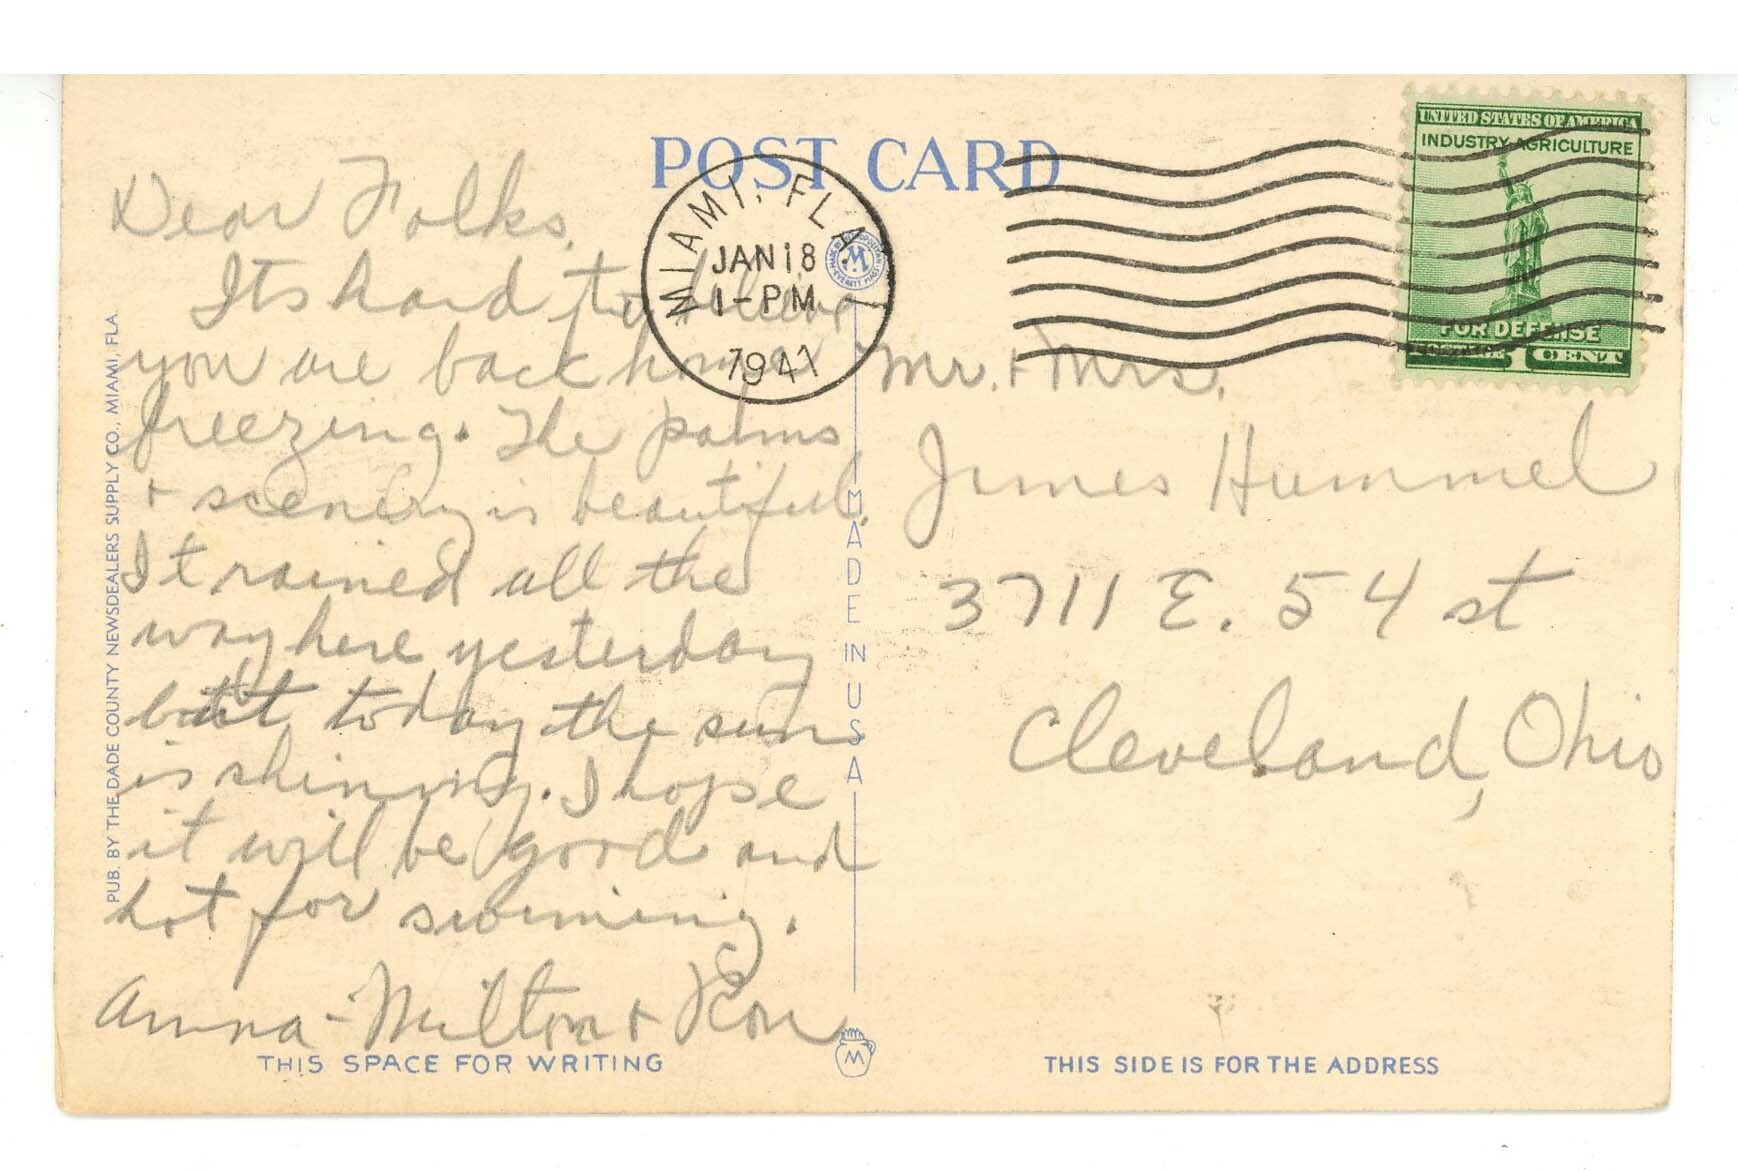 POST CARD
MIAMI, FLA.
JAN 18
1-PM
1941
UNITED STATES OF AMERICA
INDUSTRY AGRICULTURE
FOR DEFENSE
POSTAGE 1 CENT
Dear Folks,
Its hard to
you are back home
freezing. The palms
+ scenery is beautiful.
It rained all the
way here yesterday
but today the sun
is shining. I hope
it will be good and
hot for swiming.
Anna - Milton + Ron
Mr. + Mrs.
James Hummel
3711 E. 54 st
Cleveland, Ohio
PUB. BY THE DADE COUNTY NEWSDEALERS SUPPLY CO., MIAMI, FLA.
MADE IN U S A
M
THIS SPACE FOR WRITING
THIS SIDE IS FOR THE ADDRESS